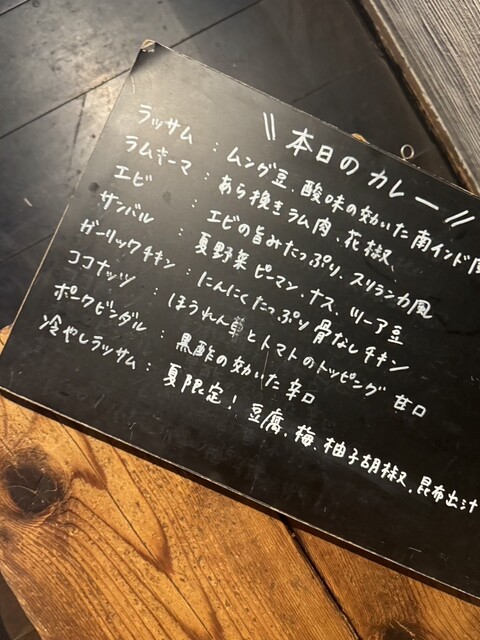 \\ 本日のカレー //
ラッサム : ムング豆、酸味の効いた南インド風
ラムキーマ : あら挽きラム肉、花椒、
エビ : エビの旨みたっぷり、スリランカ風
サンバル : 夏野菜 ピーマン・ナス、ツーア豆
ガーリックチキン : にんにくたっぷり 骨なしチキン
ココナッツ : ほうれん草とトマトのトッピング 甘口
ポークビンダル : 黒酢の効いた辛口
冷やしラッサム : 夏限定! 豆腐、梅、柚子胡椒、昆布出汁